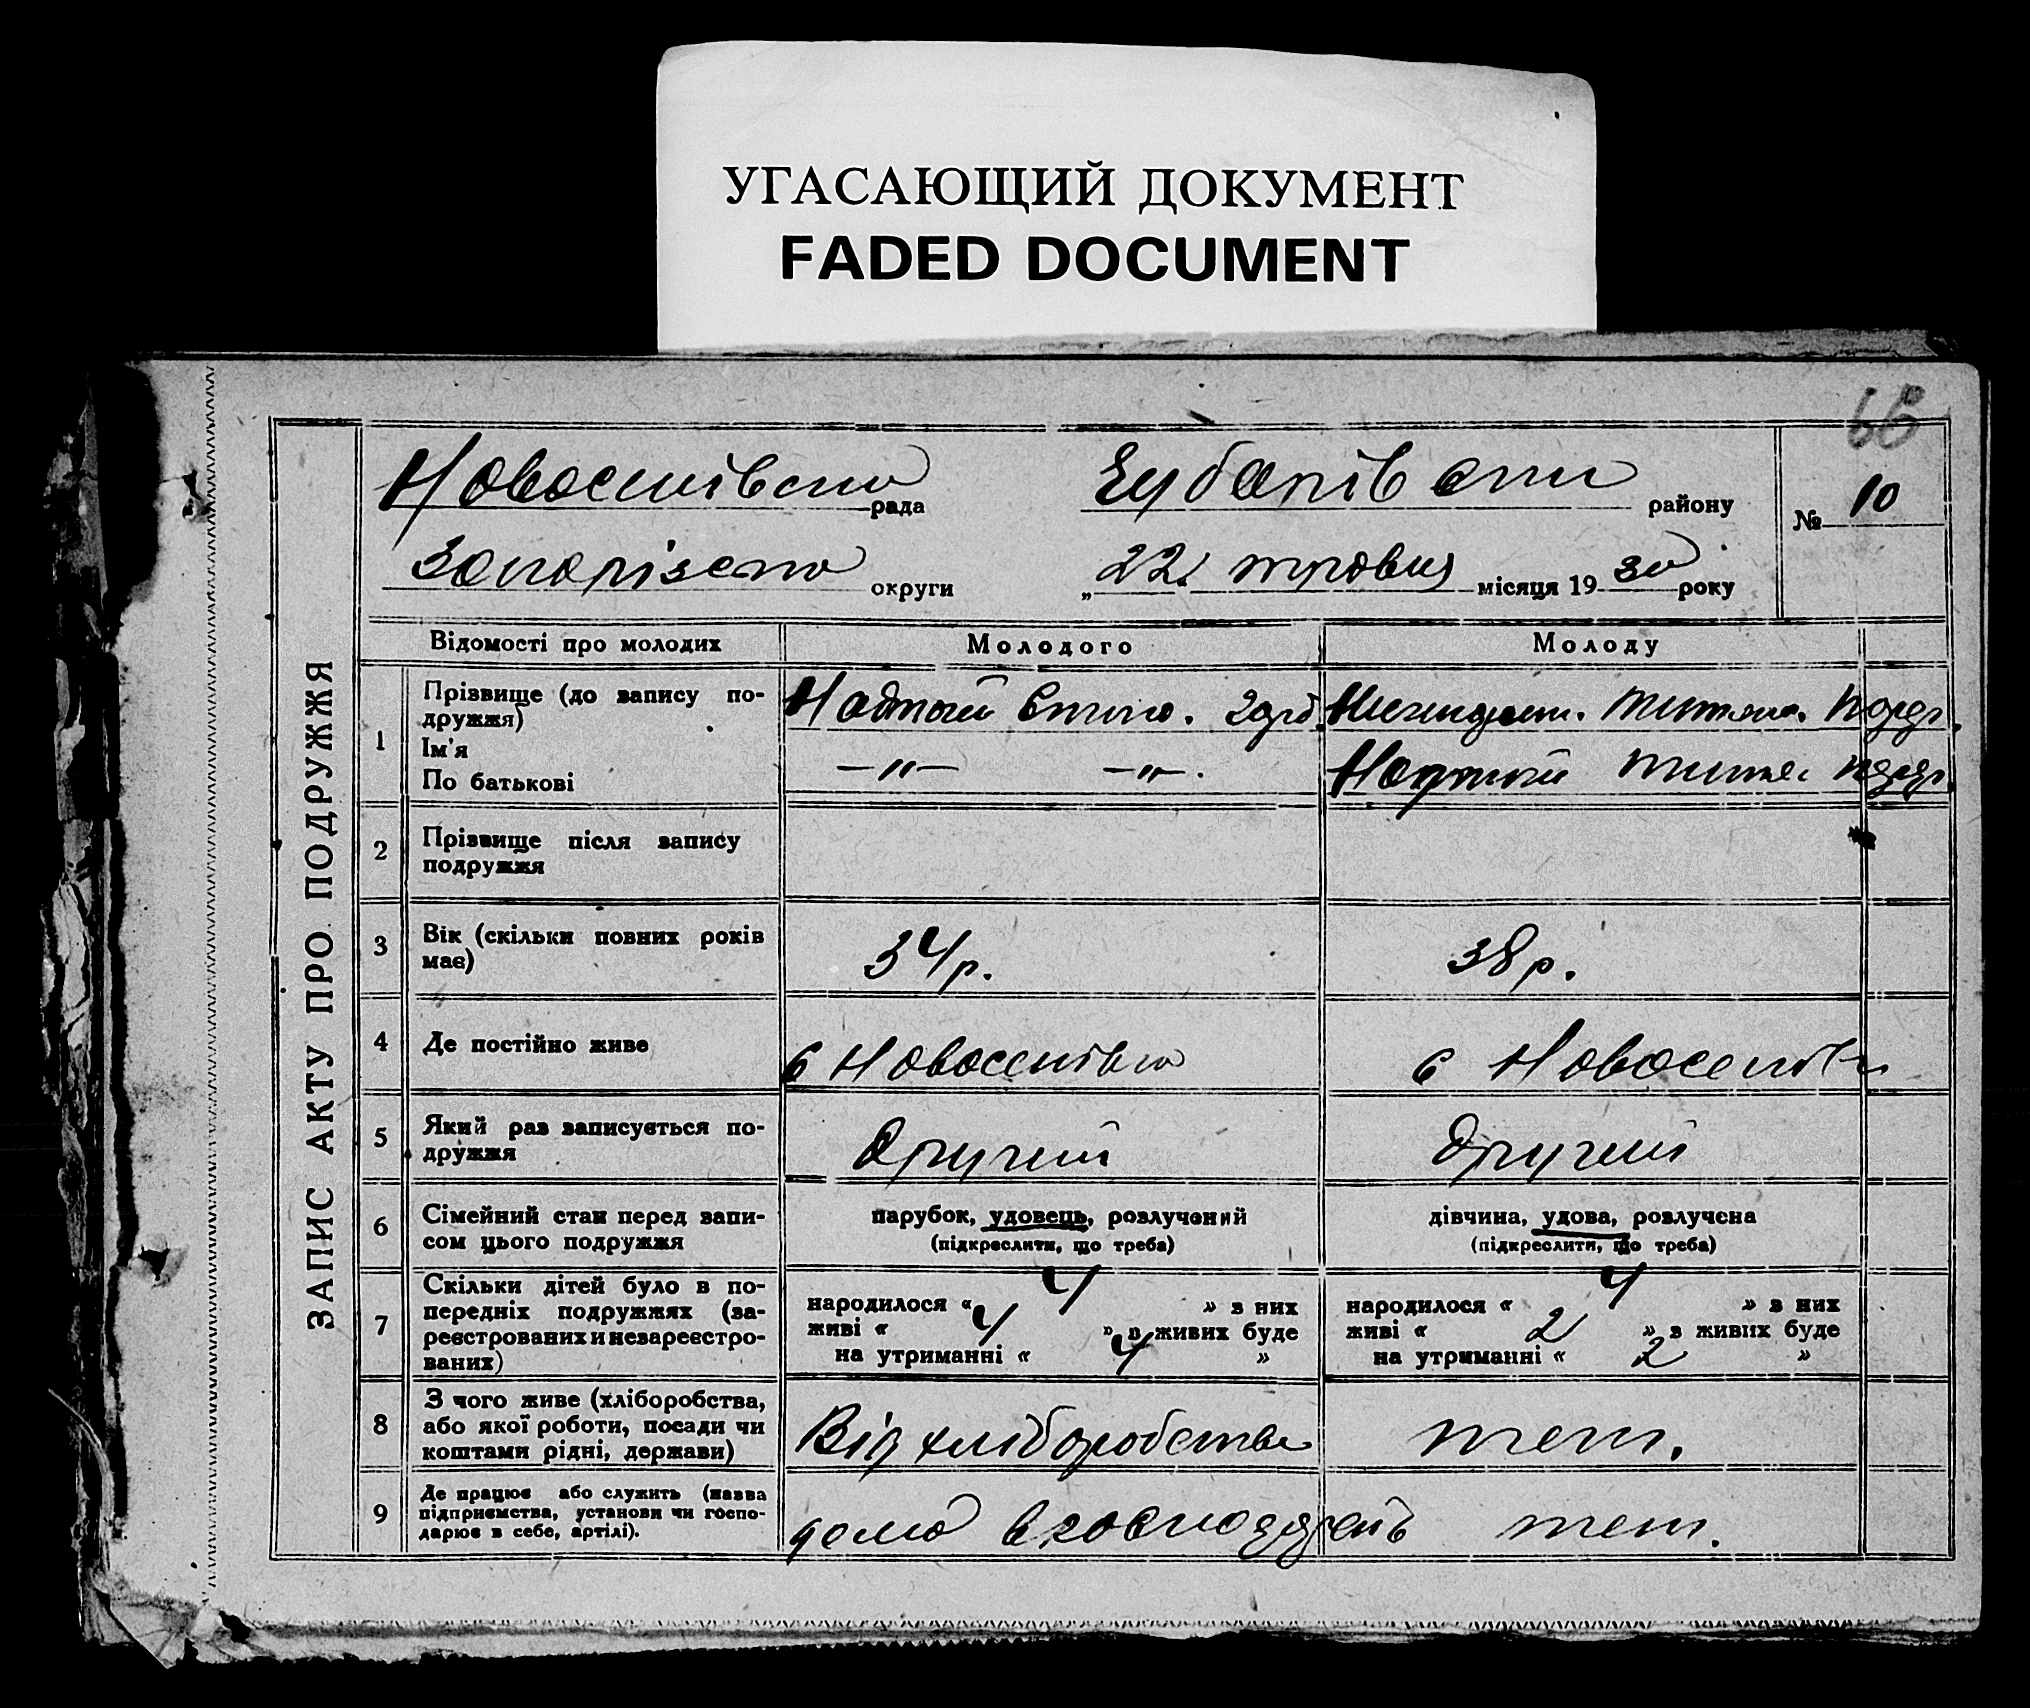 УГАСАЮЩИЙ ДОКУМЕНТ
FADED DOCUMENT
66
ЗАПИС АКТУ ПРО ПОДРУЖЖЯ
рада району № 10
округи „22 травня місяця 1930 року
Відомості про молодих Молодого Молоду
1 Прізвище (до запису по-
дружжя)
Ім'я
По батькові
—"— —"—.
2 Прізвище після запису
подружжя
3 Вік (скільки повних років
має)
34 р. 38 р.
4 Де постійно живе
с Новоселівка с Новоселівка
5 Який раз записується по-
дружжя
другий другий
6 Сімейний стан перед запи-
сом цього подружжя
парубок, удовець, розлучений дівчина, удова, розлучена
(підкреслити, що треба) (підкреслити, що треба)
7 Скільки дітей було в по-
передніх подружжях (за-
реєстрованих и незареєстро-
ваних)
народилося « 4 » з них народилося « 4 » з них
живі « 4 » з живих буде живі « 2 » з живих буде
на утриманні « 4 » на утриманні « 2 »
8 З чого живе (хліборобства,
або якої роботи, посади чи
коштами рідні, держави)
Від хліборобства теж.
9 Де працює або служить (назва
підприємства, установи чи госпо-
дарює в себе, артілі).
дома в теж.